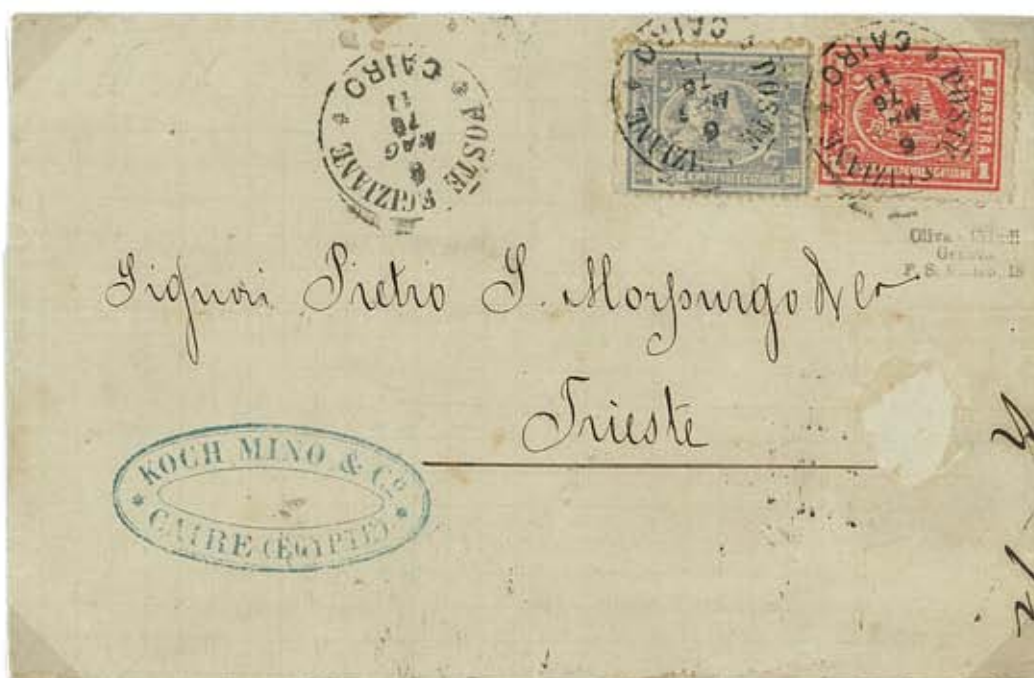 POSTE EGIZIANE
CAIRO
6
MAG
76
11
POSTE
CAIRO
6
76
11
PARA
POSTE EGIZIANE
CAIRO
6
MAG
76
11
1 PIASTRA 1
Signori Pietro S. Morpurgo & Co
Trieste
KOCH MINO & Cº
CAIRE (EGYPTE)